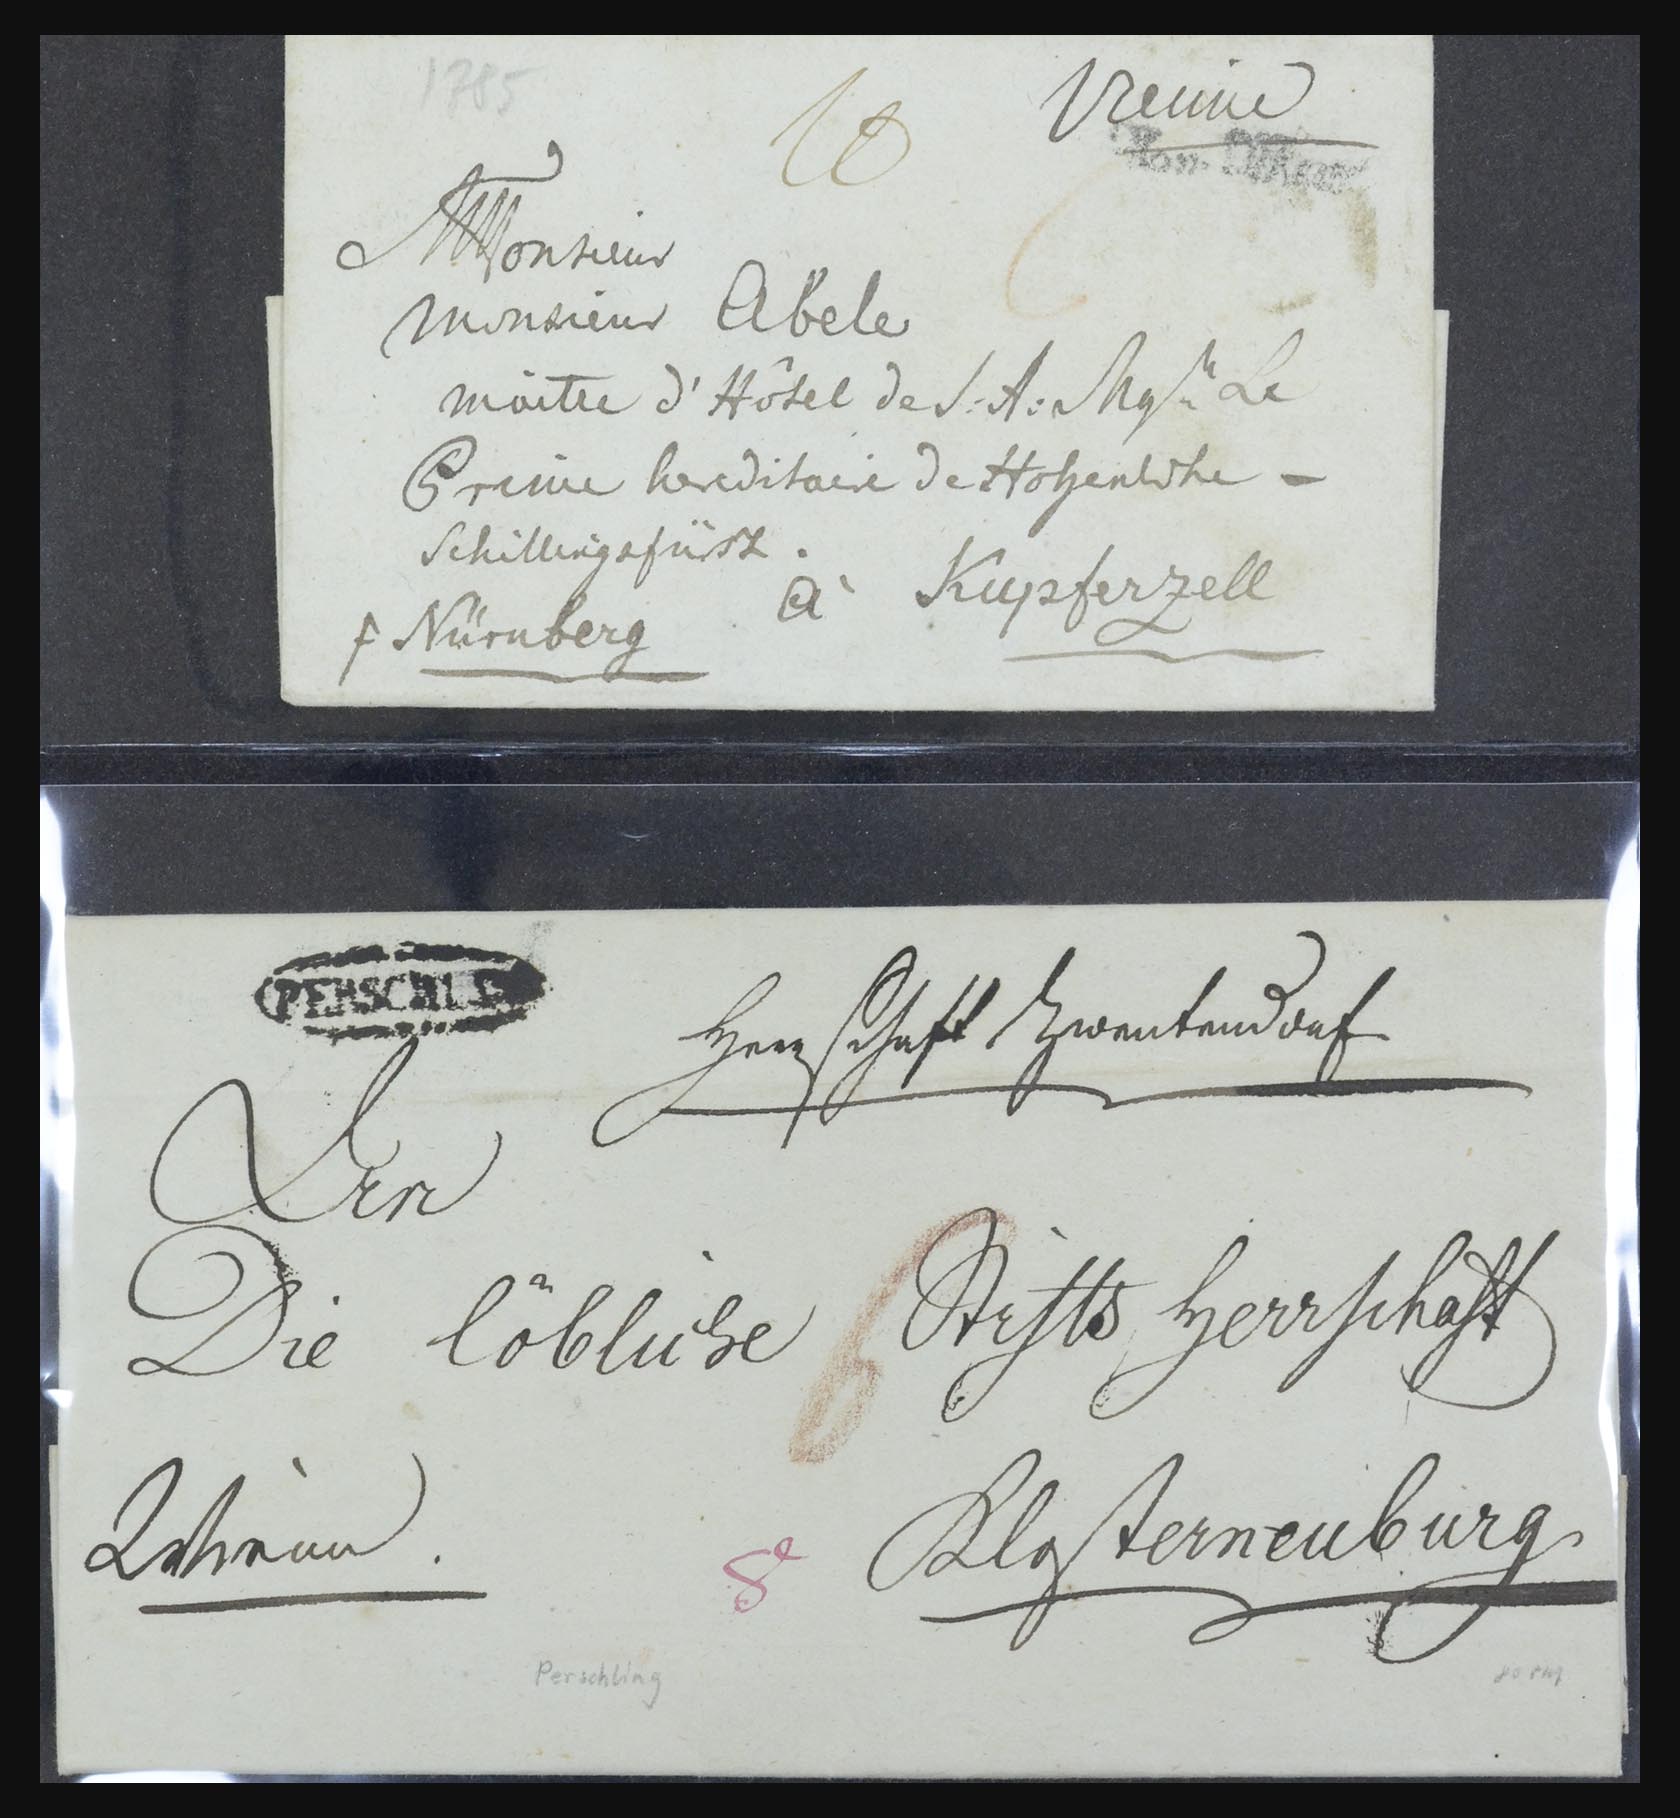 1785
Vienne
18
Von Wien
A Monsieur
monsieur Abele
maitre d'Hôtel de S: A: Mgr Le
Prince hereditaire de Hohenlohe -
Schillingsfürst.
à Kupferzell
p Nürnberg
PERSCHL
Herrschaft Zwentendorf
An
Die löbliche Stifts Herrschaft
6
Klosterneuburg
8
Perschling
80 PM